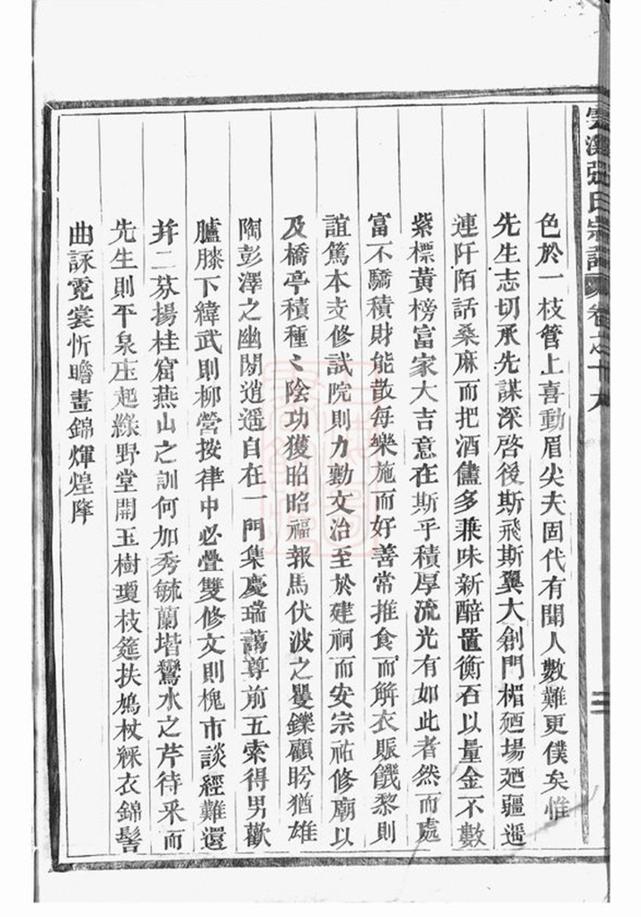 張氏宗譜 卷之十八
三
色於一枝管上喜動眉尖夫固代有聞人數難更僕矣惟
先生志切承先謀深啓後斯飛斯翼大創門楣廼場廼疆遥
連阡陌話桑麻而把酒儘多兼味新醅置衡石以量金不數
紫標黃榜富家大吉意在斯乎積厚流光有如此者然而處
富不驕積財能散每樂施而好善常推食而解衣賑餓黎則
誼篤本支修試院則力勷文治至於建祠而安宗祐修廟以
及橋亭積種〻陰功獲昭昭福報馬伏波之矍鑠顧盼猶雄
陶彭澤之幽閒逍遥自在一門集慶瑞藹尊前五索得男歡
臚膝下緯武則柳營按律中必疊雙修文則槐市談經難還
幷二芬揚桂窟燕山之訓何加秀毓蘭堦鸞水之芹待采而
先生則平泉庄起綠野堂開玉樹瓊枝筵扶鳩杖綵衣錦髻
曲詠霓裳忻瞻晝錦輝煌庠